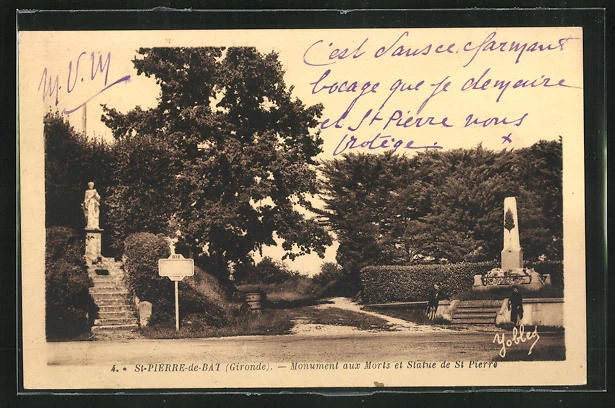 C'est dans ce charmant
bocage que je demeure
et St Pierre vous
protège x
M.V.M
BAT
Yobled
4. • St-PIERRE-de-BAT (Gironde). — Monument aux Morts et Statue de St Pierre